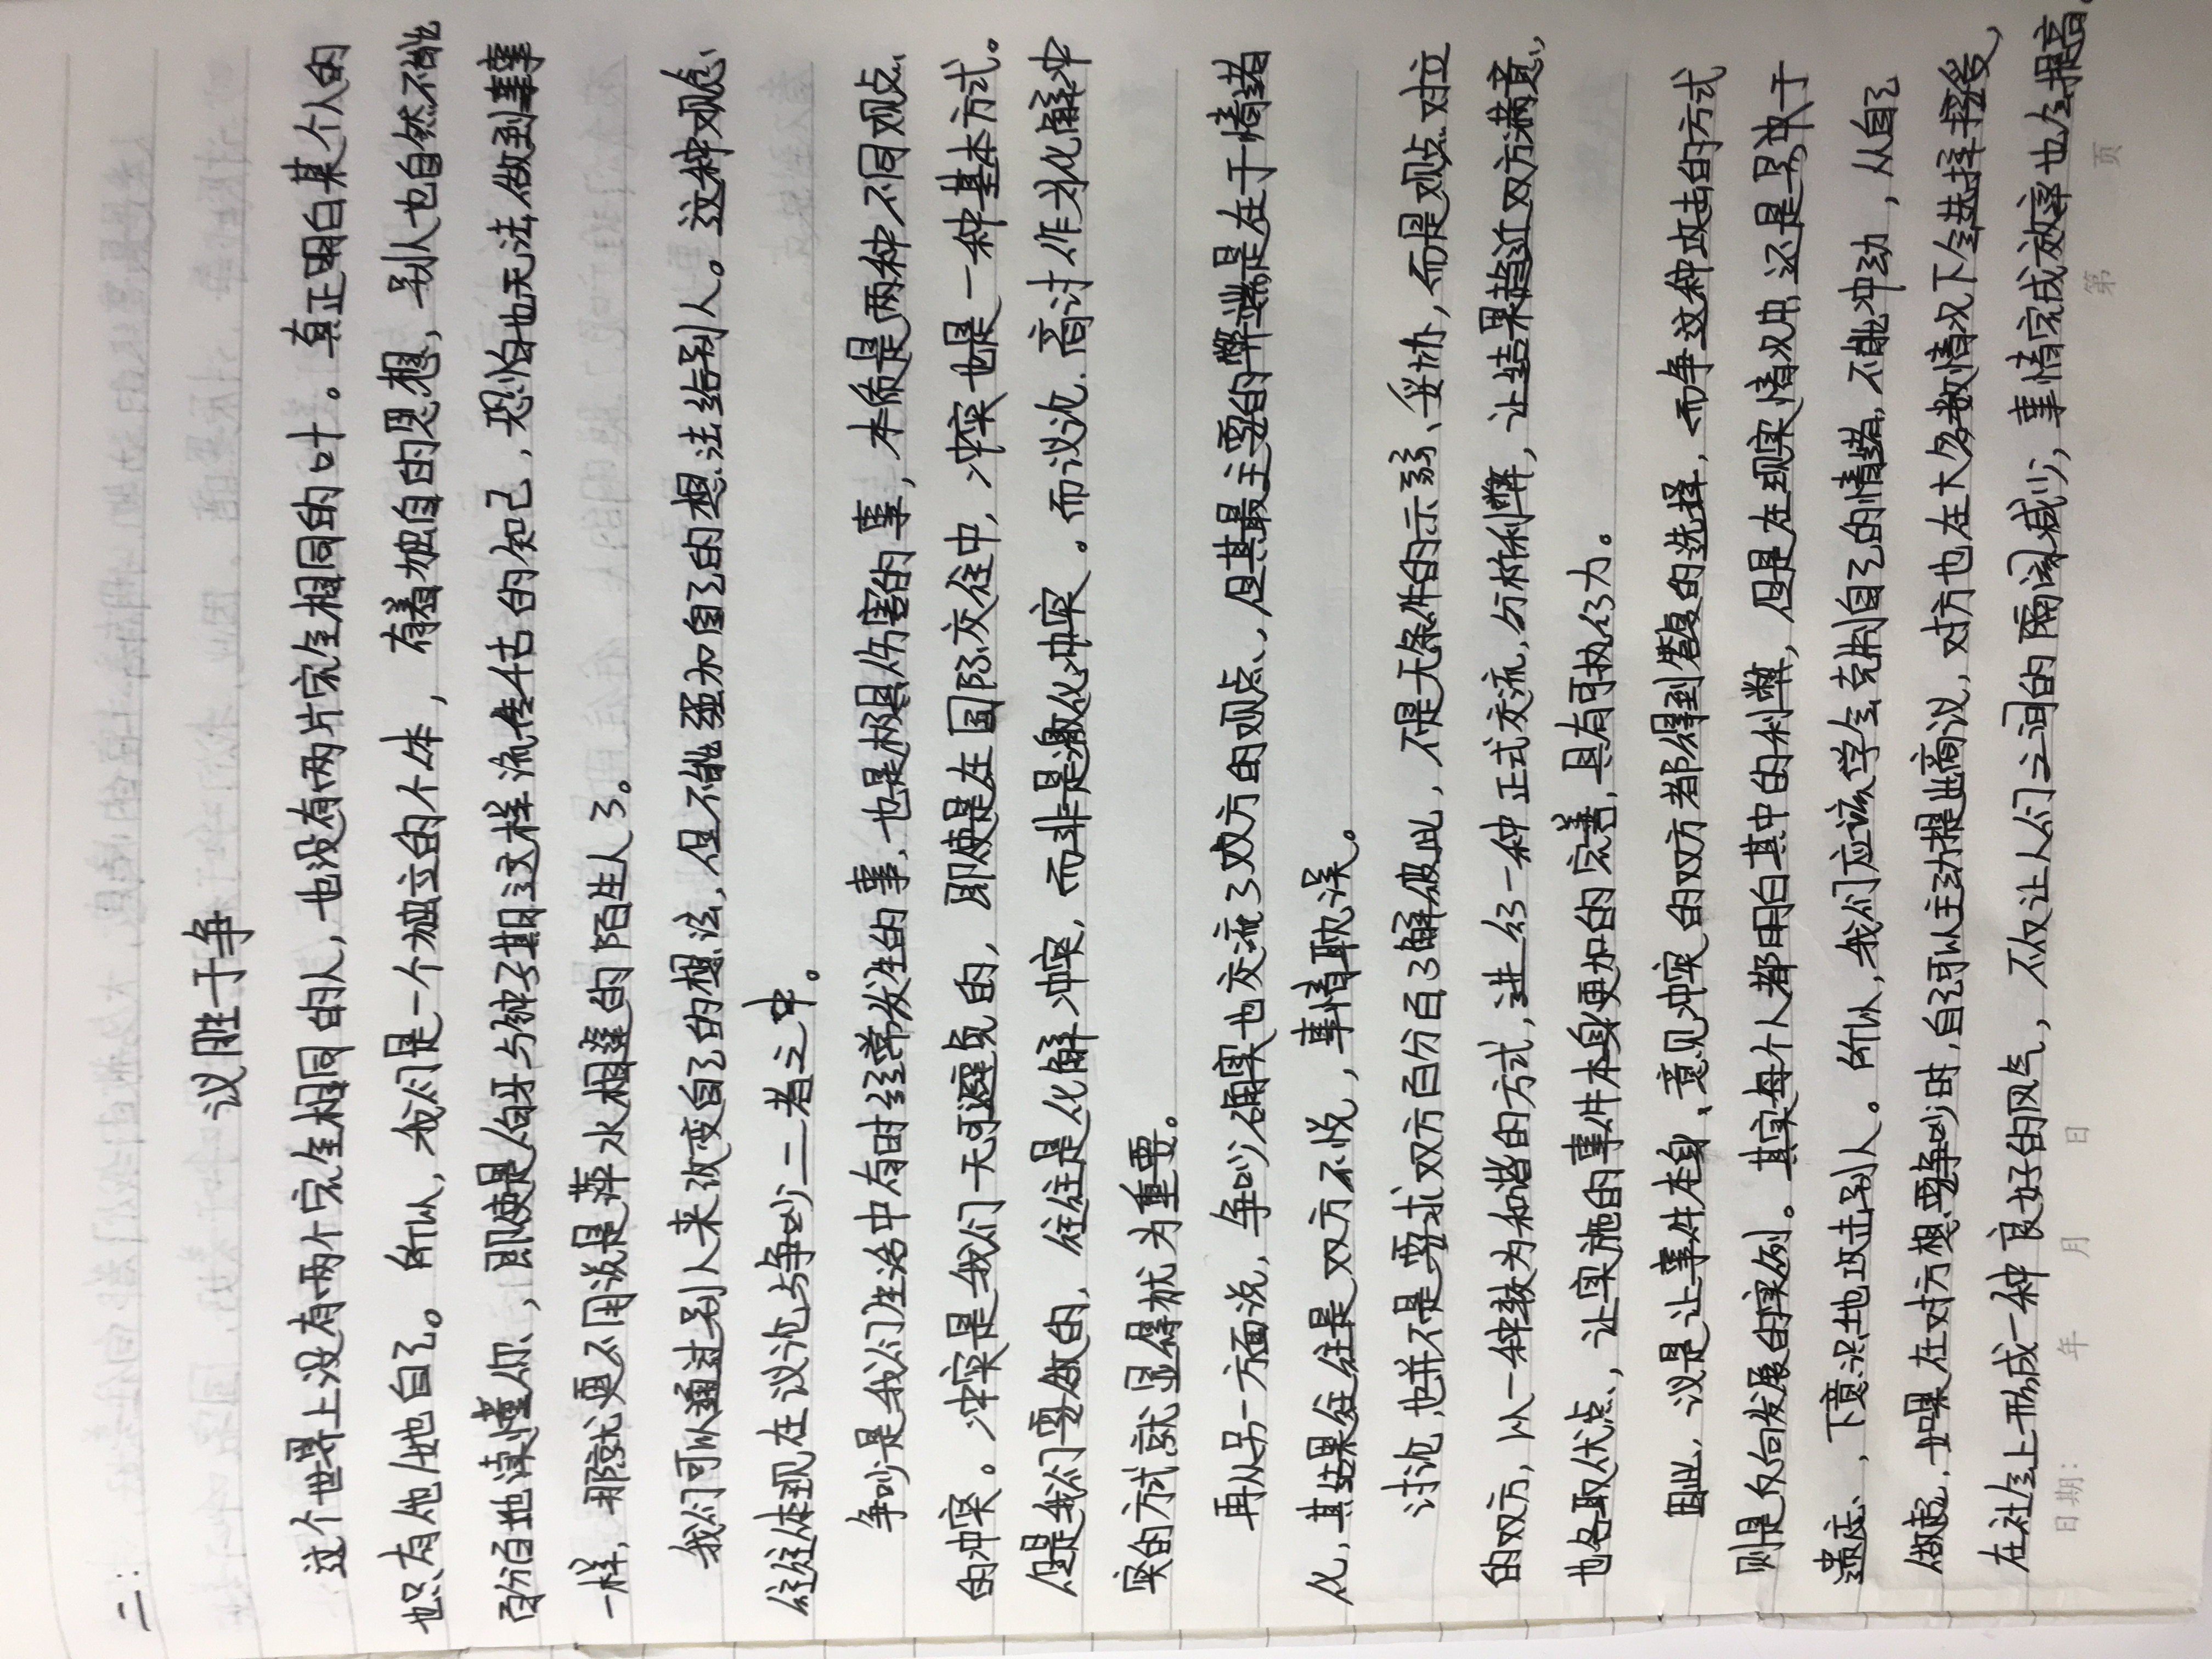 二：
议胜于争
这个世界上没有两个完全相同的人，也没有两片完全相同的叶。真正明白某个人的
也只有他/她自己。所以，我们是一个独立的个体，有着独自的思想，别人也自然不能
百分百地读懂你，即使是伯牙与钟子期这样流传千古的知己，恐怕也无法做到事事
一样，那就更不用说是萍水相逢的陌生人了。
我们可以通过别人来改变自己的想法，但不能强加自己的想法给别人。这种观念
往往体现在议论与争吵二者之中。
争吵是我们生活中有时经常发生的事，也是极具伤害的事，本质是两种不同观点
的冲突。冲突是我们无可避免的，即使是在国际交往中，冲突也是一种基本方式。
但是我们要做的，往往是化解冲突，而非是激化冲突。而议论、商讨作为化解冲
突的方式就显得尤为重要。
再从另一方面说，争吵确实也交流了双方的观点，但其最主要的弊端是在于情绪
化，其结果往往是双方不悦，事情耽误。
讨论，也并不是要求双方百分百了解彼此，不是无条件的示弱、妥协，而是观点对立
的双方，以一种较为和谐的方式，进行一种正式交流，分析利弊，让结果趋近双方满意，
也各取优点，让实施的事件本身更加的完善，具有可执行力。
因此，议是让事件本身、意见冲突的双方都得到答复的选择，而争这种攻击的方式
则是反向发展的实例。其实每个人都明白其中的利弊，但是在现实情况中，还是易冲于
遗忘，下意识地攻击别人。所以，我们应该学会克制自己的情绪，不能冲动，从自己
做起，如果在对方想要争吵时，自己可以主动提出商议，对方也在大多数情况下会选择接受，
在社会上形成一种良好的风气，不仅让人们之间的隔阂减少，事情完成效率也会提高。
日期： 年 月 日 第 页